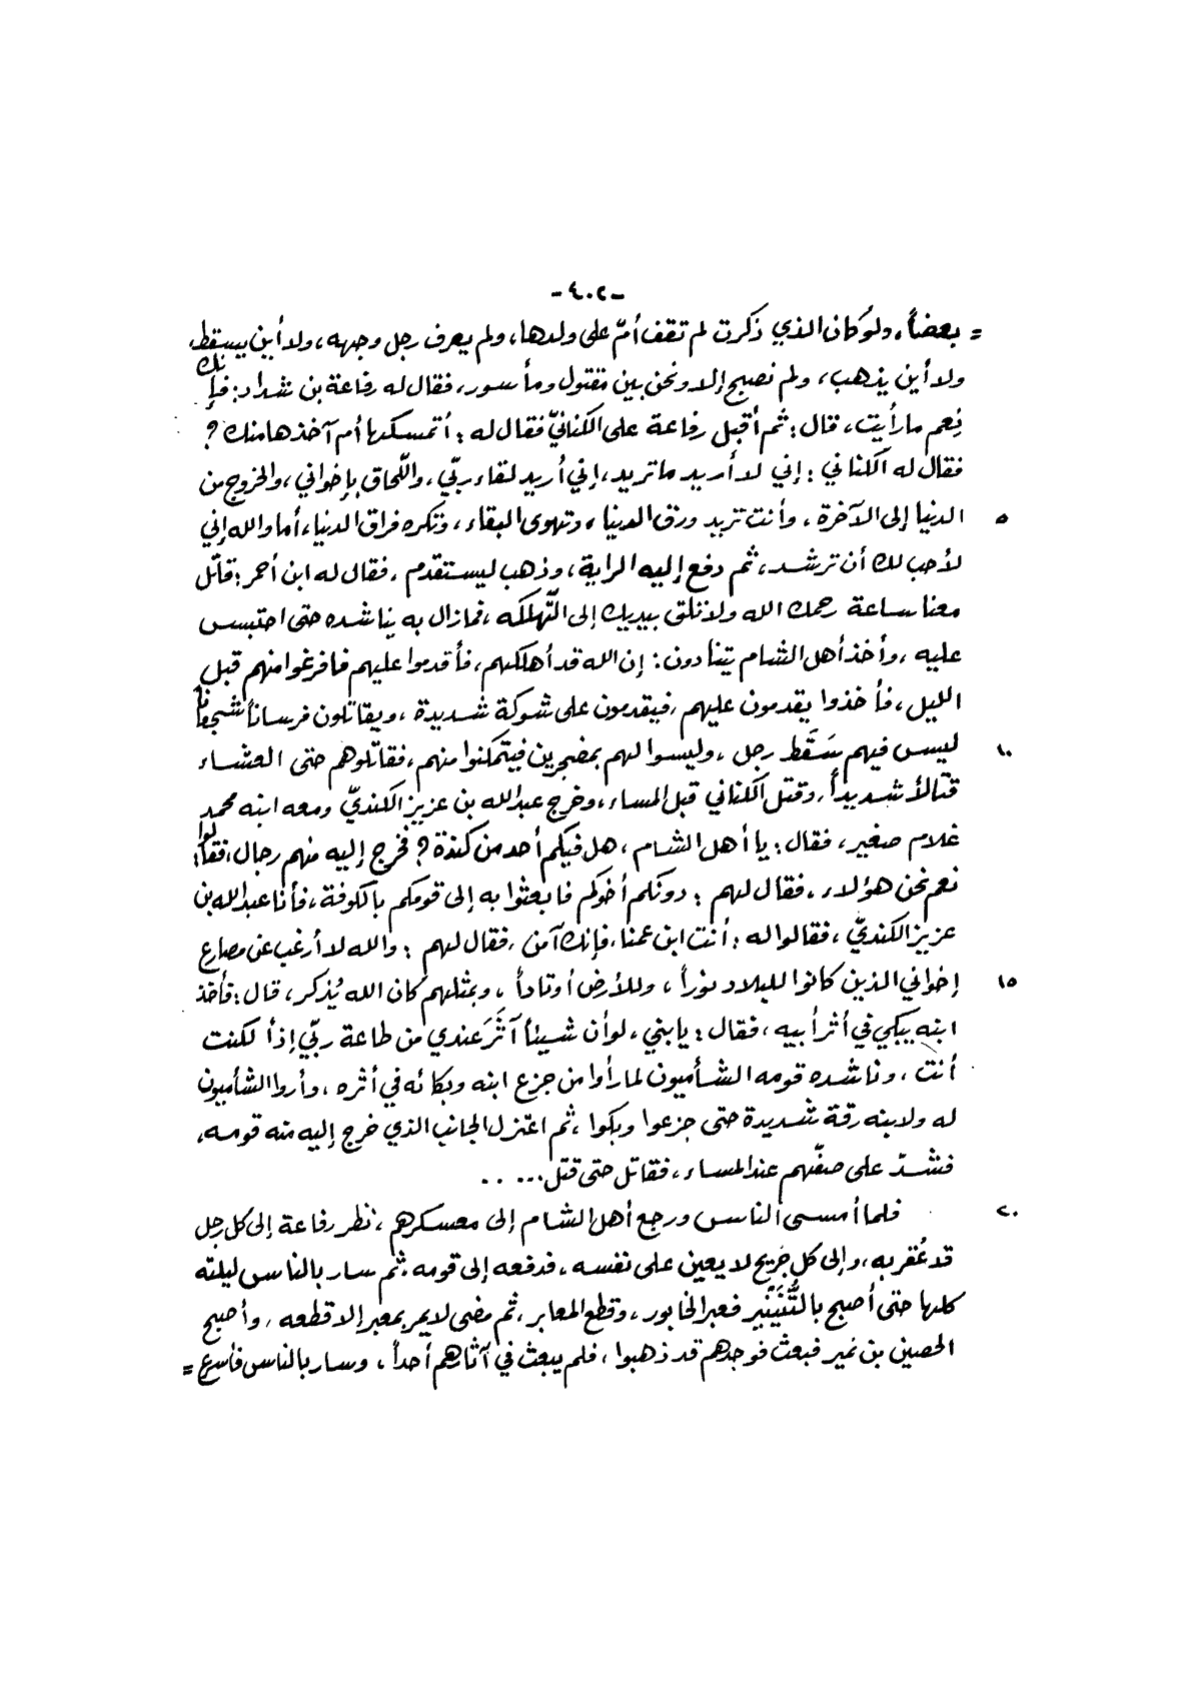 -٤٠٢-
= بعضاً، ولو كان الذي ذكرت لم تقف أمّ على ولدها، ولم يعرف رجل وجهه، ولا أين يسقط،
ولا أين يذهب، ولم نصبح إلا ونحن بين مقتول ومأسور، فقال له رفاعة بن شداد: فإنك
نِعم ما رأيت، قال: ثم أقبل رفاعة على الكنانيّ فقال له: أتمسكها أم آخذها منك؟
فقال له الكناني: إني لا أريد ما تريد، إني أريد لقاء ربّي، واللّحاق بإخواني، والخروج من
٥ الدنيا إلى الآخرة، وأنت تريد ورق الدنيا، وتهوى البقاء، وتكره فراق الدنيا، أما والله إني
لأحب لك أن ترشد، ثم دفع إليه الراية، وذهب ليستقدم، فقال له ابن أحمر: قاتل
معنا ساعة رحمك الله ولا تلق بيديك إلى التّهلكه، فمازال به يناشده حتى احتبس
عليه، وأخذ أهل الشام يتنادون: إن الله قد أهلكهم، فأقدموا عليهم فافرغوا منهم قبل
الليل، فأخذوا يقدمون عليهم، فيقدمون على شوكة شديدة، ويقاتلون فرساناً شجعاناً
١٠ ليس فيهم سَقَط رجل، وليسوا لهم بمضجرين فيتمكنوا منهم، فقاتلوهم حتى العشاء
قتالاً شديداً، وقتل الكناني قبل المساء، وخرج عبدالله بن عزيز الكنديّ ومعه ابنه محمد
غلام صغير، فقال: يا أهل الشام، هل فيكم أحد من كندة؟ فخرج إليه منهم رجال، فقالوا:
نعم نحن هؤلاء، فقال لهم: دونكم أخوكم فابعثوا به إلى قومكم بالكوفة، فأنا عبدالله بن
عزيز الكنديّ، فقالوا له: أنت ابن عمنا، فإنك آمن، فقال لهم: والله لا أرغب عن مصارع
١٥ إخواني الذين كانوا للبلاد نوراً، وللأرض أوتاداً، وبمثلهم كان الله يُذكر، قال: فأخذ
ابنه يبكي في أثر أبيه، فقال: يا بني، لو أن شيئاً آثَرَ عندي من طاعة ربّي إذاً لكنت
أنت، وناشده قومه الشأميون لما رأوا من جزع ابنه وبكائه في أثره، وأروا الشأميون
له ولابنه رقة شديدة حتى جزعوا وبكوا، ثم اعتزل الجانب الذي خرج إليه منه قومه،
فشدّ على صفّهم عند المساء، فقاتل حتى قتل.....
٢٠ فلما أمسى الناس ورجع أهل الشام إلى معسكرهم، نظر رفاعة إلى كل رجل
قد عُقر به، وإلى كل جَريح لا يعين على نفسه، فدفعه إلى قومه، ثم سار بالناس ليلته
كلها حتى أصبح بالتُّنَيْنير فعبر الخابور، وقطع المعابر، ثم مضى لا يمر بمعبر إلا قطعه، وأصبح
الحصين بن نمير فبعث فوجدهم قد ذهبوا، فلم يبعث في آثارهم أحداً، وسار بالناس فأسرع =